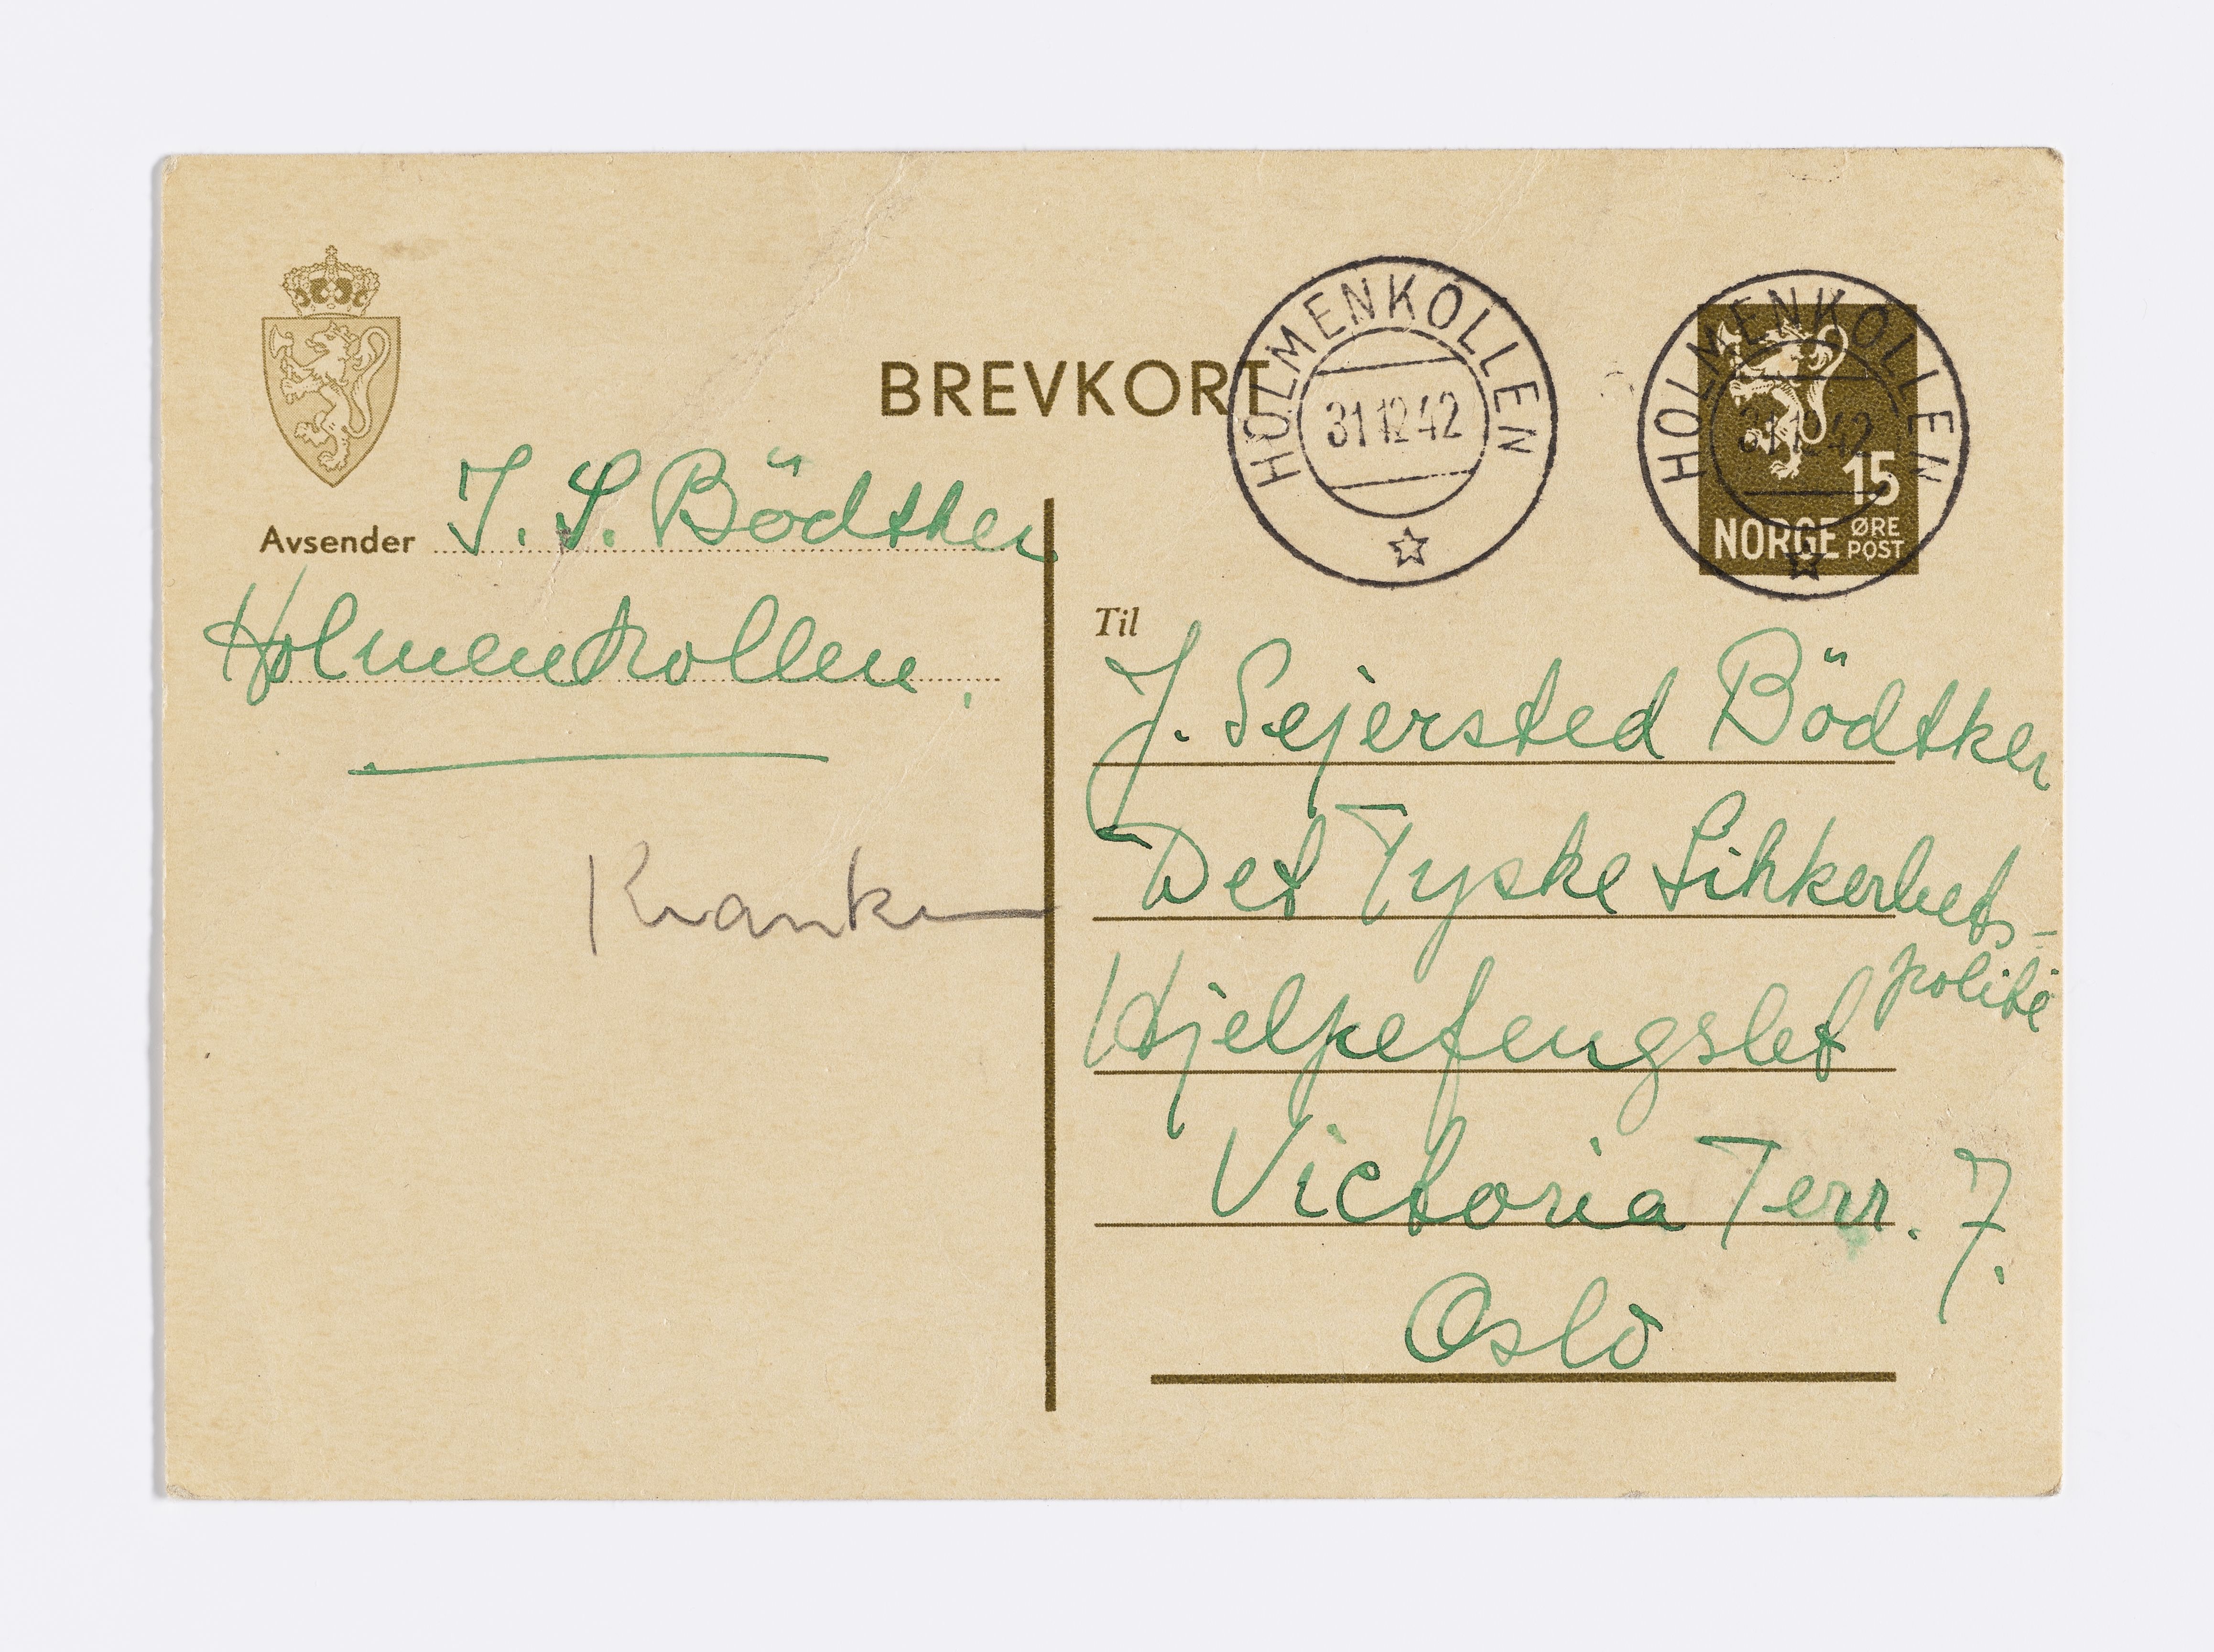 BREVKORT
HOLMENKOLLEN
31 12 42
HOLMENKOLLEN
31 12 42
15
NORGE ØRE POST
Avsender J. S. Bödtker
Holmenkollen.
Til
J. Sejersted Bödtker
Det Tyske Sikkerhets-
politi
Hjelpefengslet
Victoria Terr. 7.
Oslo